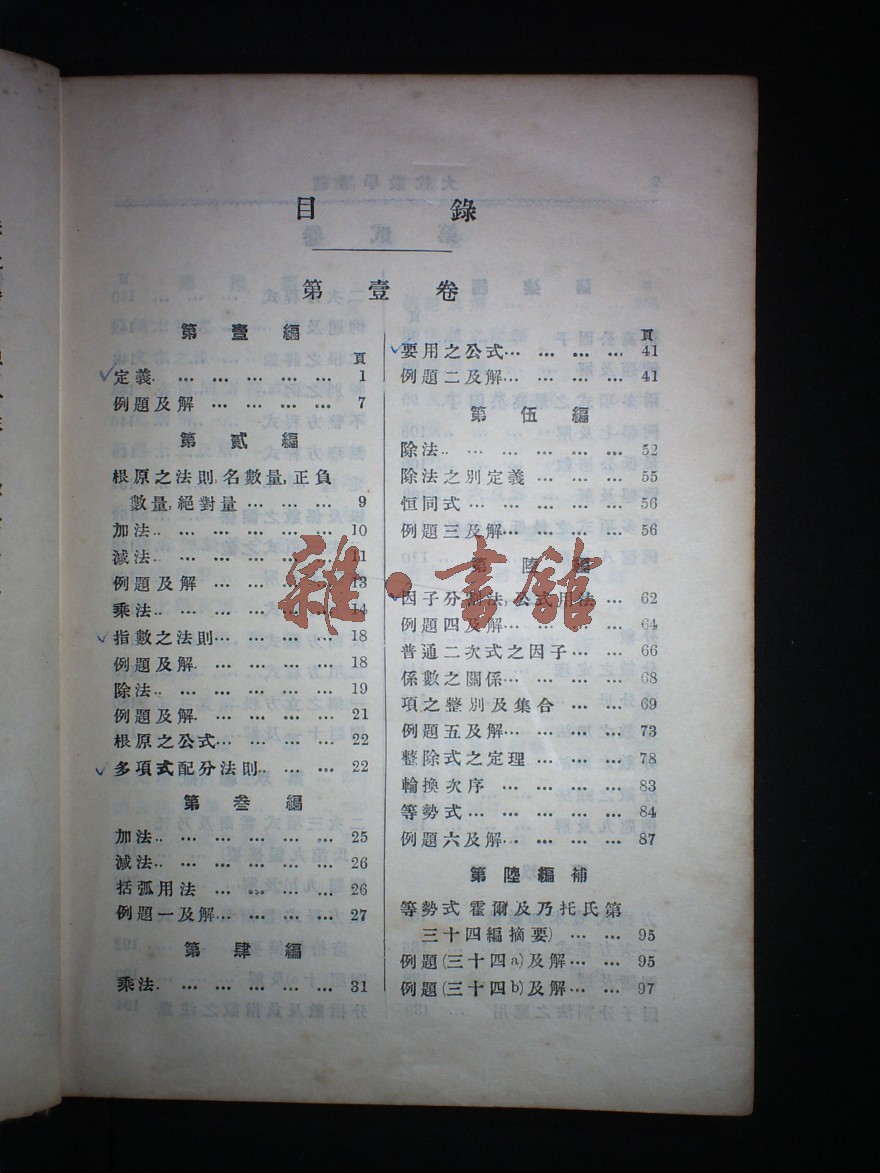 目錄
第壹卷
第壹編
頁
定義‥ … … … … … … 1
例題及解 … … … … … 7
第貳編
根原之法則,名數量,正負
數量,絕對量 … … … 9
加法‥ … … … … … … 10
減法‥ … … … … … … 11
例題及解 … … … … … 13
乘法‥ … … … … … … 14
指數之法則… … … … … 18
例題及解‥ … … … … … 18
除法‥ … … … … … … 19
例題及解‥ … … … … … 21
根原之公式… … … … … 22
多項式配分法則‥ … … … 22
第叁編
加法‥ … … … … … … 25
減法‥ … … … … … … 26
括弧用法 … … … … … 26
例題一及解… … … … … 27
第肆編
乘法‥ … … … … … … 31
頁
要用之公式… … … … … 41
例題二及解… … … … … 41
第伍編
除法‥ … … … … … … 52
除法之別定義 … … … … 55
恒同式 … … … … … … 56
例題三及解… … … … … 56
第陸編
因子分割法,公式用法 … … 62
例題四及解… … … … … 64
普通二次式之因子… … … 66
係數之關係… … … … … 68
項之整別及集合 … … … 69
例題五及解… … … … … 73
整除式之定理 … … … … 78
輪換次序 … … … … … 83
等勢式 … … … … … … 84
例題六及解‥ … … … … 87
第陸編補
等勢式 霍爾及乃托氏第
三十四編摘要) … … … 95
例題(三十四a)及解… … … 95
例題(三十四b)及解… … … 97
雜·書館